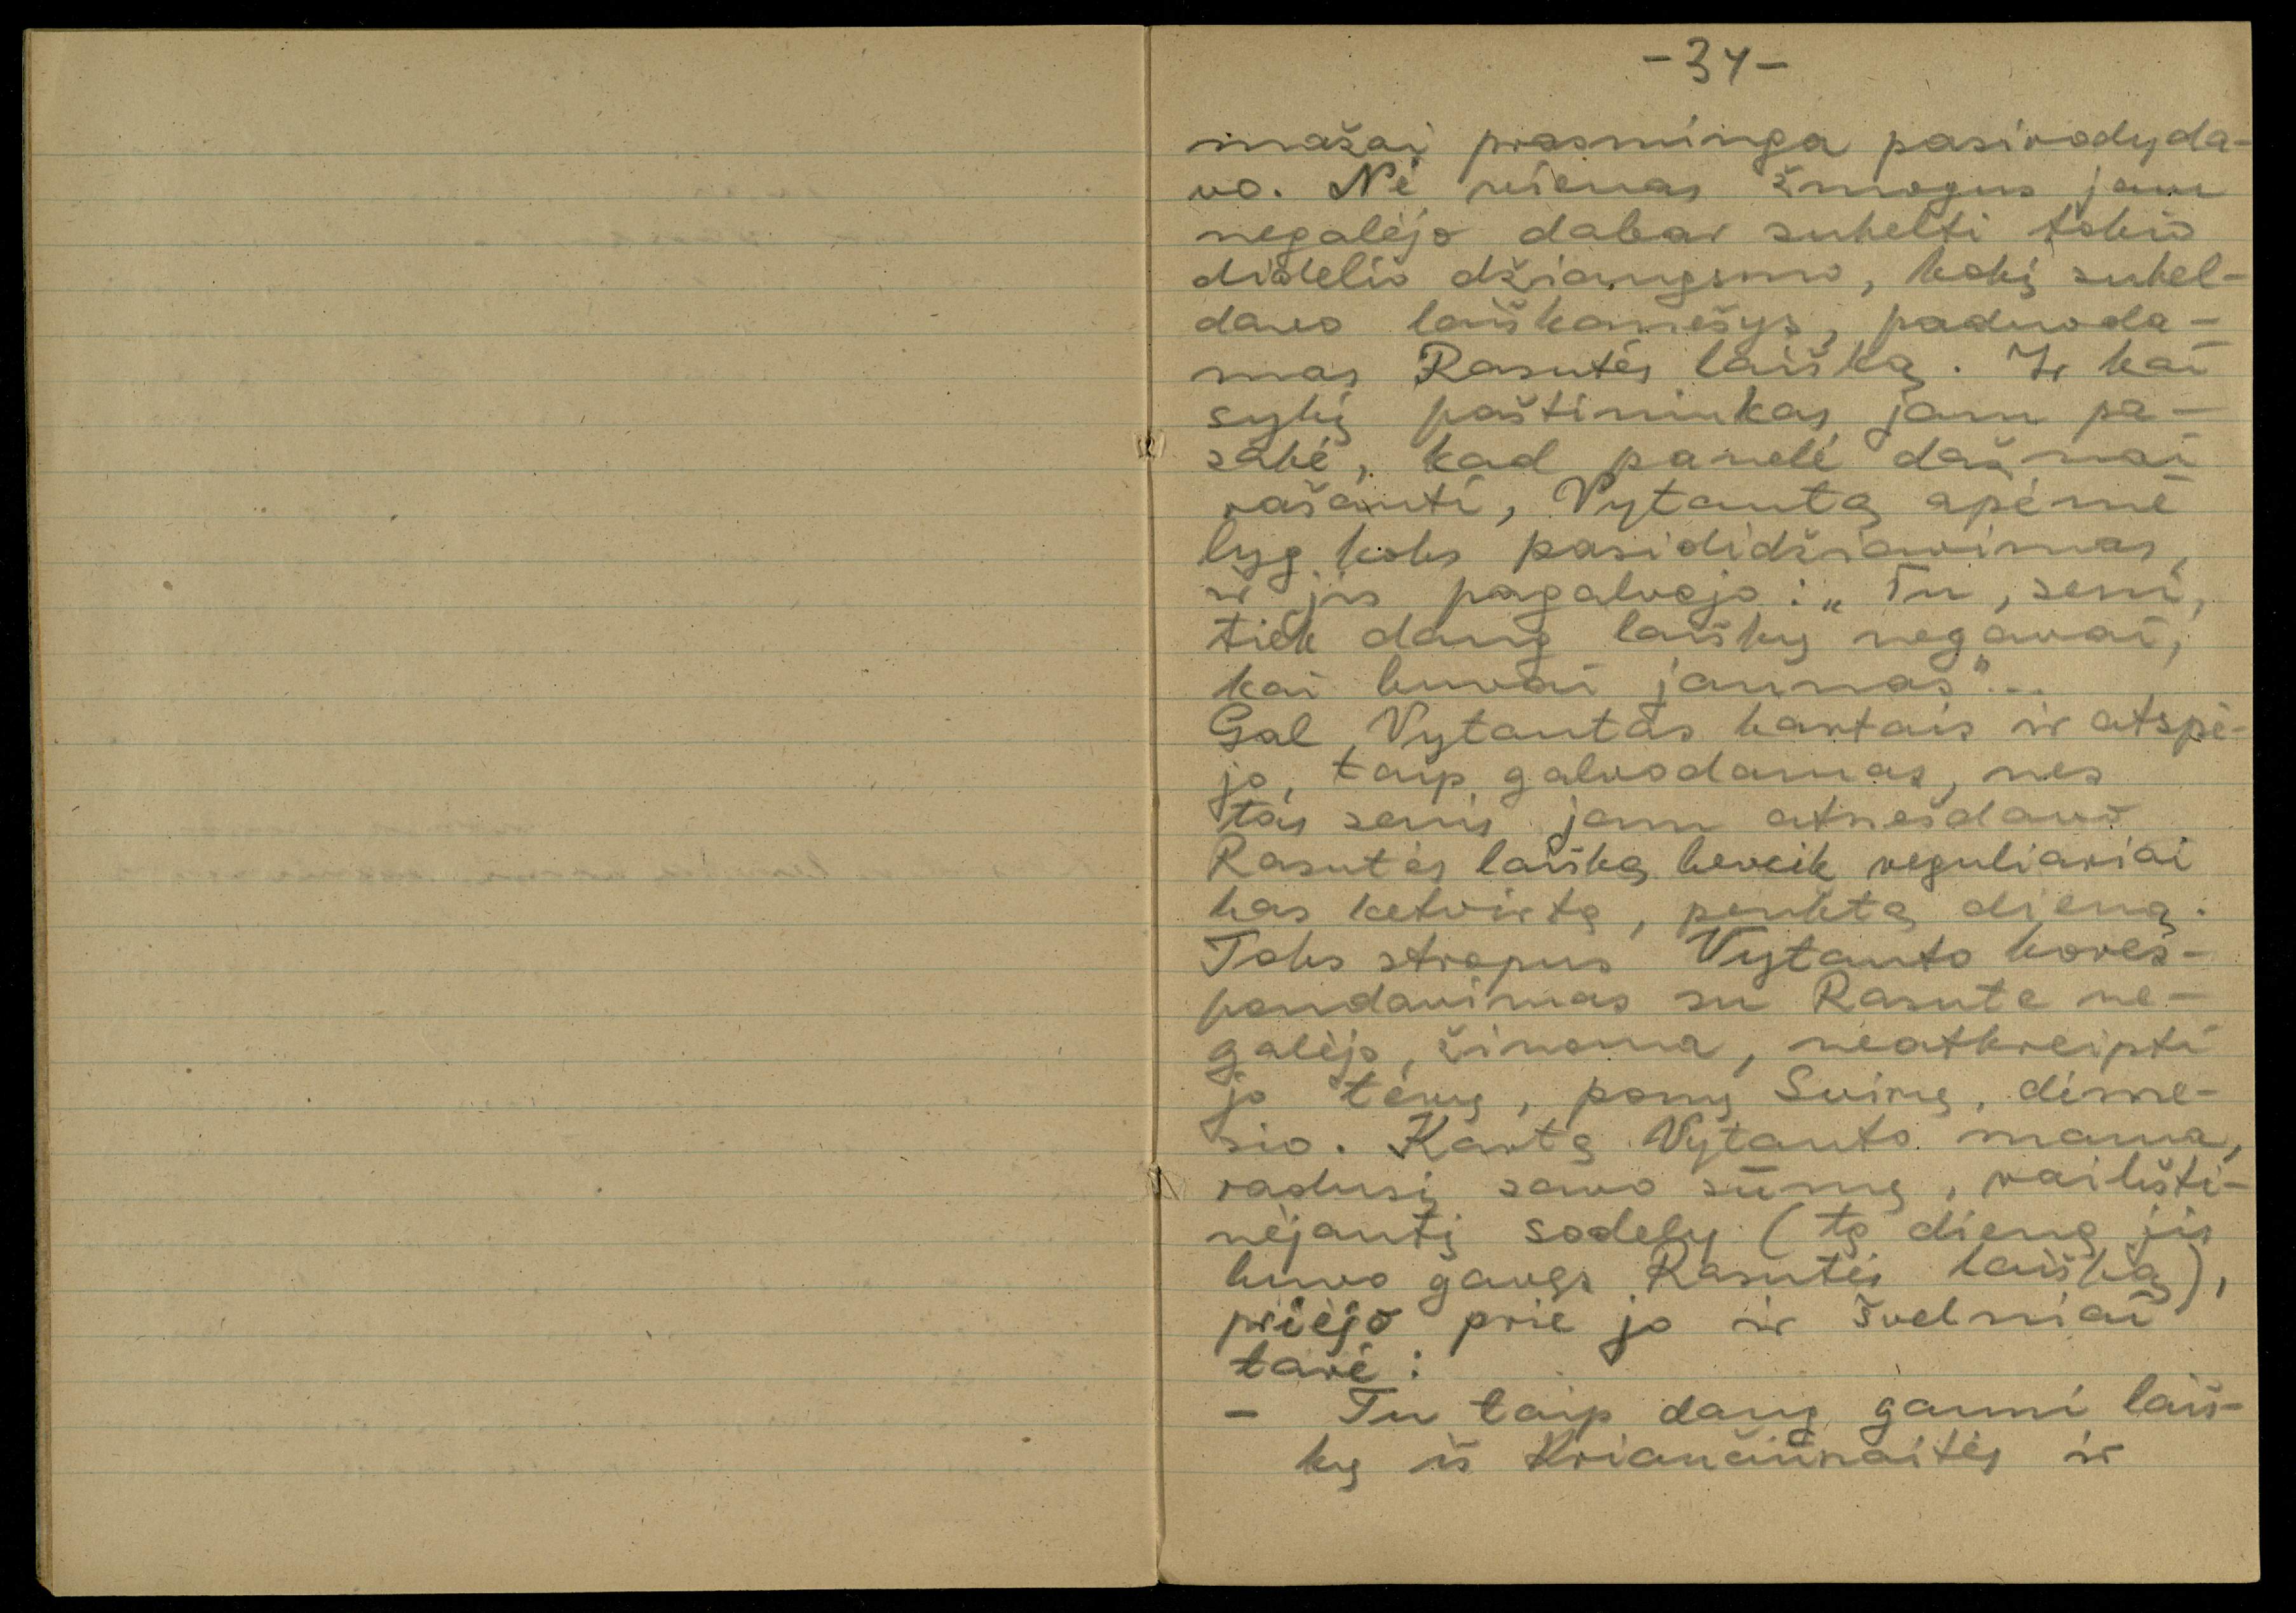 -34-
mažai prasminga pasirodyda-
vo. Nė vienas žmogus jam
negalėjo dabar sukelti tokio
didelio džiaugsmo, kokį sukel-
davo laiškanešys, paduoda-
mas Rasutės laišką. Ir kai
sykį paštininkas jam pa-
sakė, kad panelė dažnai
rašanti, Vytautą apėmė
lyg koks pasididžiavimas,
ir jis pagalvojo: „Tu, seni,
tiek daug laiškų negavai,
kai buvai jaunas"...
Gal Vytautas kartais ir atspė-
jo, taip galvodamas, nes
tas senis jam atnešdavo
Rasutės laišką beveik reguliariai
kas ketvirtą, penktą dieną.
Toks stropus Vytauto kores-
pondavimas su Rasute ne-
galėjo, žinoma, neatkreipti
jo tėvų, ponų Svirų, dėme-
sio. Kartą Vytauto mama,
radusi savo sūnų, vaikšti-
nėjantį sodely (tą dieną jis
buvo gavęs Rasutės laišką),
priėjo prie jo ir švelniai
tarė:
- Tu taip daug gauni laiš-
kų iš Kriaučiūnaitės ir